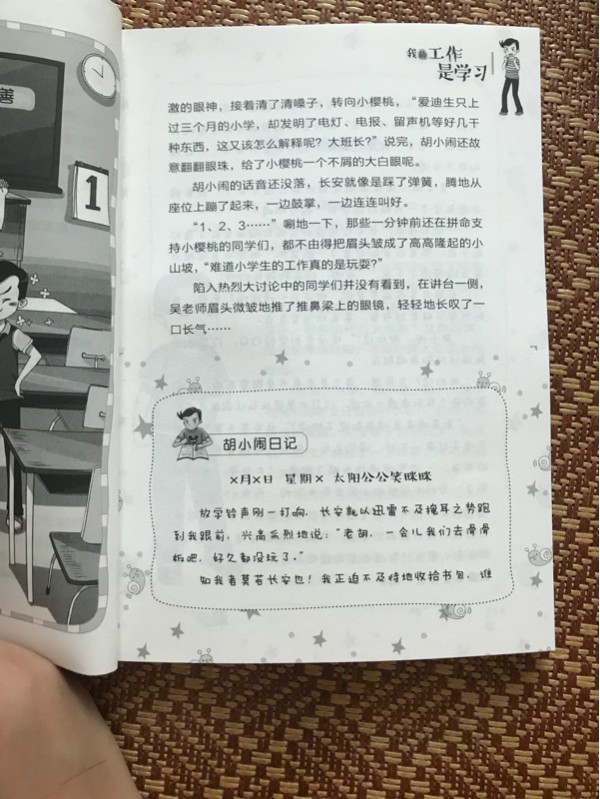 善
1
我的工作
是学习
激的眼神，接着清了清嗓子，转向小樱桃，“爱迪生只上
过三个月的小学，却发明了电灯、电报、留声机等好几千
种东西，这又该怎么解释呢？大班长？”说完，胡小闹还故
意翻翻眼珠，给了小樱桃一个不屑的大白眼呢。
胡小闹的话音还没落，长安就像是踩了弹簧，腾地从
座位上蹦了起来，一边鼓掌，一边连连叫好。
“1、2、3……”唰地一下，那些一分钟前还在拼命支
持小樱桃的同学们，都不由得把眉头皱成了高高隆起的小
山坡，“难道小学生的工作真的是玩耍？”
陷入热烈大讨论中的同学们并没有看到，在讲台一侧，
吴老师眉头微皱地推了推鼻梁上的眼镜，轻轻地长叹了一
口长气……
胡小闹日记
×月×日 星期× 太阳公公笑眯眯
放学铃声刚一打响，长安就以迅雷不及掩耳之势跑
到我跟前，兴高采烈地说：“老胡，一会儿我们去滑滑
板吧，好久都没玩了。”
知我者莫若长安也！我正迫不及待地收拾书包，谁